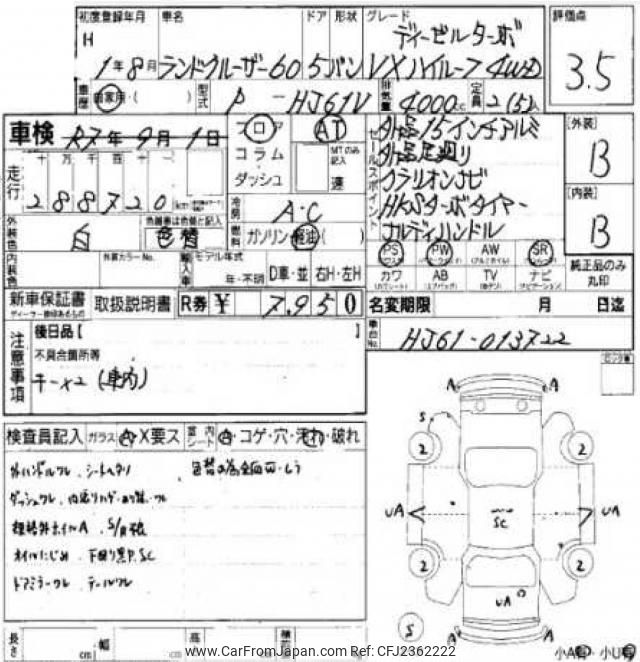 初度登録年月 車名 ドア 形状 グレード 評価点
H ディーゼルターボ
1年8月 ランドクルーザー60 5 バン VXハイルーフ4WD 3.5
車歴 自家用・( ) 型式 P-HJ61V 排気量 4000cc 定員 2(5)人
車検 R7年9月1日 フロア AT セールスポイント 外品15インチアルミ [外装]
コラム MTのみ記入 外品足廻り B
ダッシュ 速 クラリオンナビ
走行 十 万 千 百 十 一 HKSターボタイマー [内装]
288720 km 冷房 A・C ナルディハンドル B
外装色 白 色替 燃料 ガソリン 軽油 ( ) PS PW AW SR 純正品のみ丸印
内装色 外装カラーNo. 輸入車 モデル年式 年・不明 D車・並 右H・左H カワ AB TV ナビ
新車保証書 取扱説明書 R券 ¥ 7,950 名変期限 月 日迄
ディーラー捺印あるもの
注意事項 後日品[ ] 車台No. HJ61-013722
不具合箇所等
キーx2 (車内)
検査員記入 ガラス A・X要ス 室内シート A・コゲ・穴・汚れ・破れ
外ハンドルワレ、シートヘタリ
ダッシュワレ、
S/月数
オイルにじみ、下廻り黒P.SC
ドアミラーワレ、テールワレ
A A
S
2 2
UA SC UA
2 2
UA
S A A
長さ cm 幅 cm 高 cm 積
小A有 小U有
www.CarFromJapan.com Ref: CFJ2362222